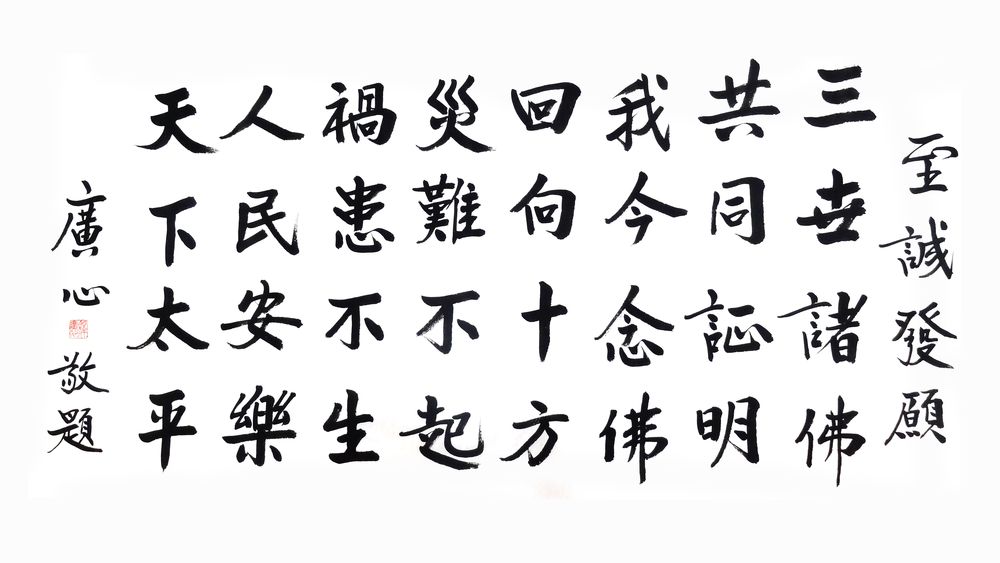 至誠發願
三世諸佛
共同証明
我今念佛
回向十方
災難不起
禍患不生
人民安樂
天下太平
廣心敬題